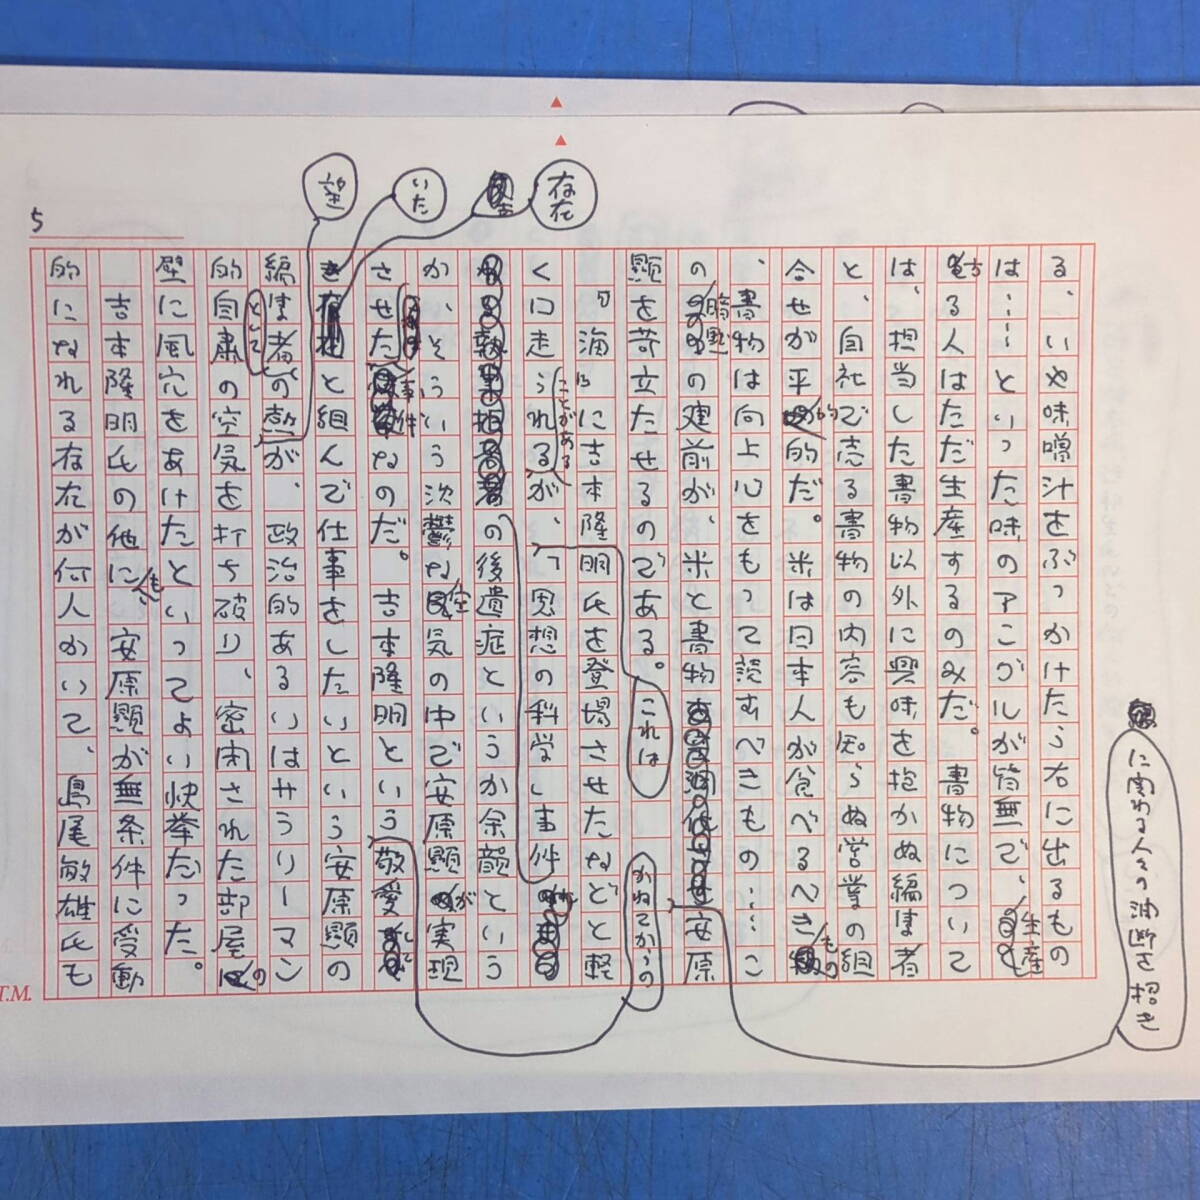 5
る、いや味噌汁をぶっかけたら右に出るもの
は……といった味のアこヴルが皆無で、生産
する人はただ生産するのみだ。書物について
は、担当した書物以外に興味を抱かぬ編集者
と、自社で売る書物の内容も知らぬ営業の組
合せが平均的だ。米は日本人が食べるべきもの
、書物は向上心をもって読むべきもの……こ
の暗黙の建前が、米と書物に関わる人々の油断を招き安原
顯を苛立たせるのである。
『海』に吉本隆明氏を登場させたなどと軽
く口走られることがあるが、これは「思想の科学」事件
の後遺症というか余韻という
か、そういう沈鬱な空気の中で安原顯が実現
させた事件なのだ。吉本隆明というかねてからの敬愛し
いた存在と組んで仕事をしたいという安原顯の
編集者としての熱望が、政治的あるいはサラリーマン
的自粛の空気を打ち破り、密閉された部屋の
壁に風穴をあけたといってよい快挙だった。
吉本隆明氏の他にも、安原顯が無条件に受動
的になれる存在が何人かいて、島尾敏雄氏も
T.M.